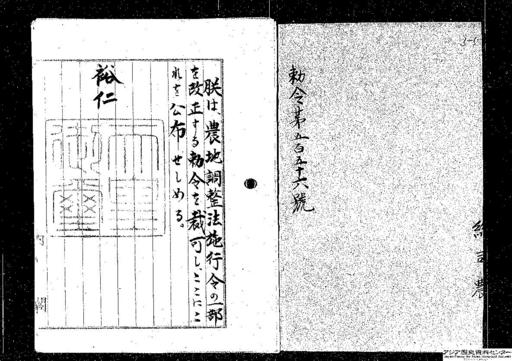 勅令第五百五十六號
朕は、農地調整法施行令の一部
を改正する勅令を裁可し、ここにこ
れを公布せしめる。
裕仁
天皇御璽
内閣
アジア歴史資料センター